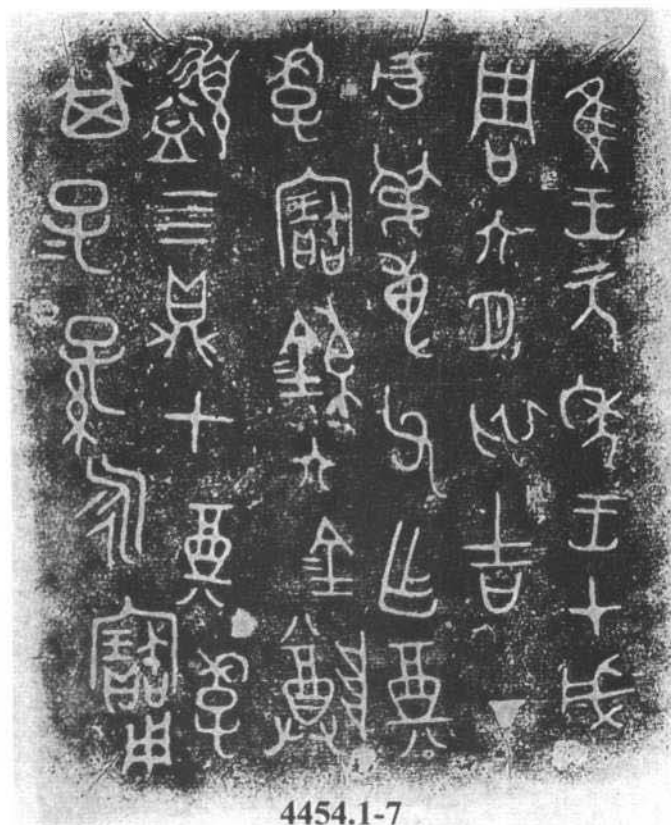 隹王元年王才成
周六月初吉丁
亥弔專父乍奠
季寶鐘六金尊
盨四鼎七奠季
其子＝孫＝永寶用
4454.1-7